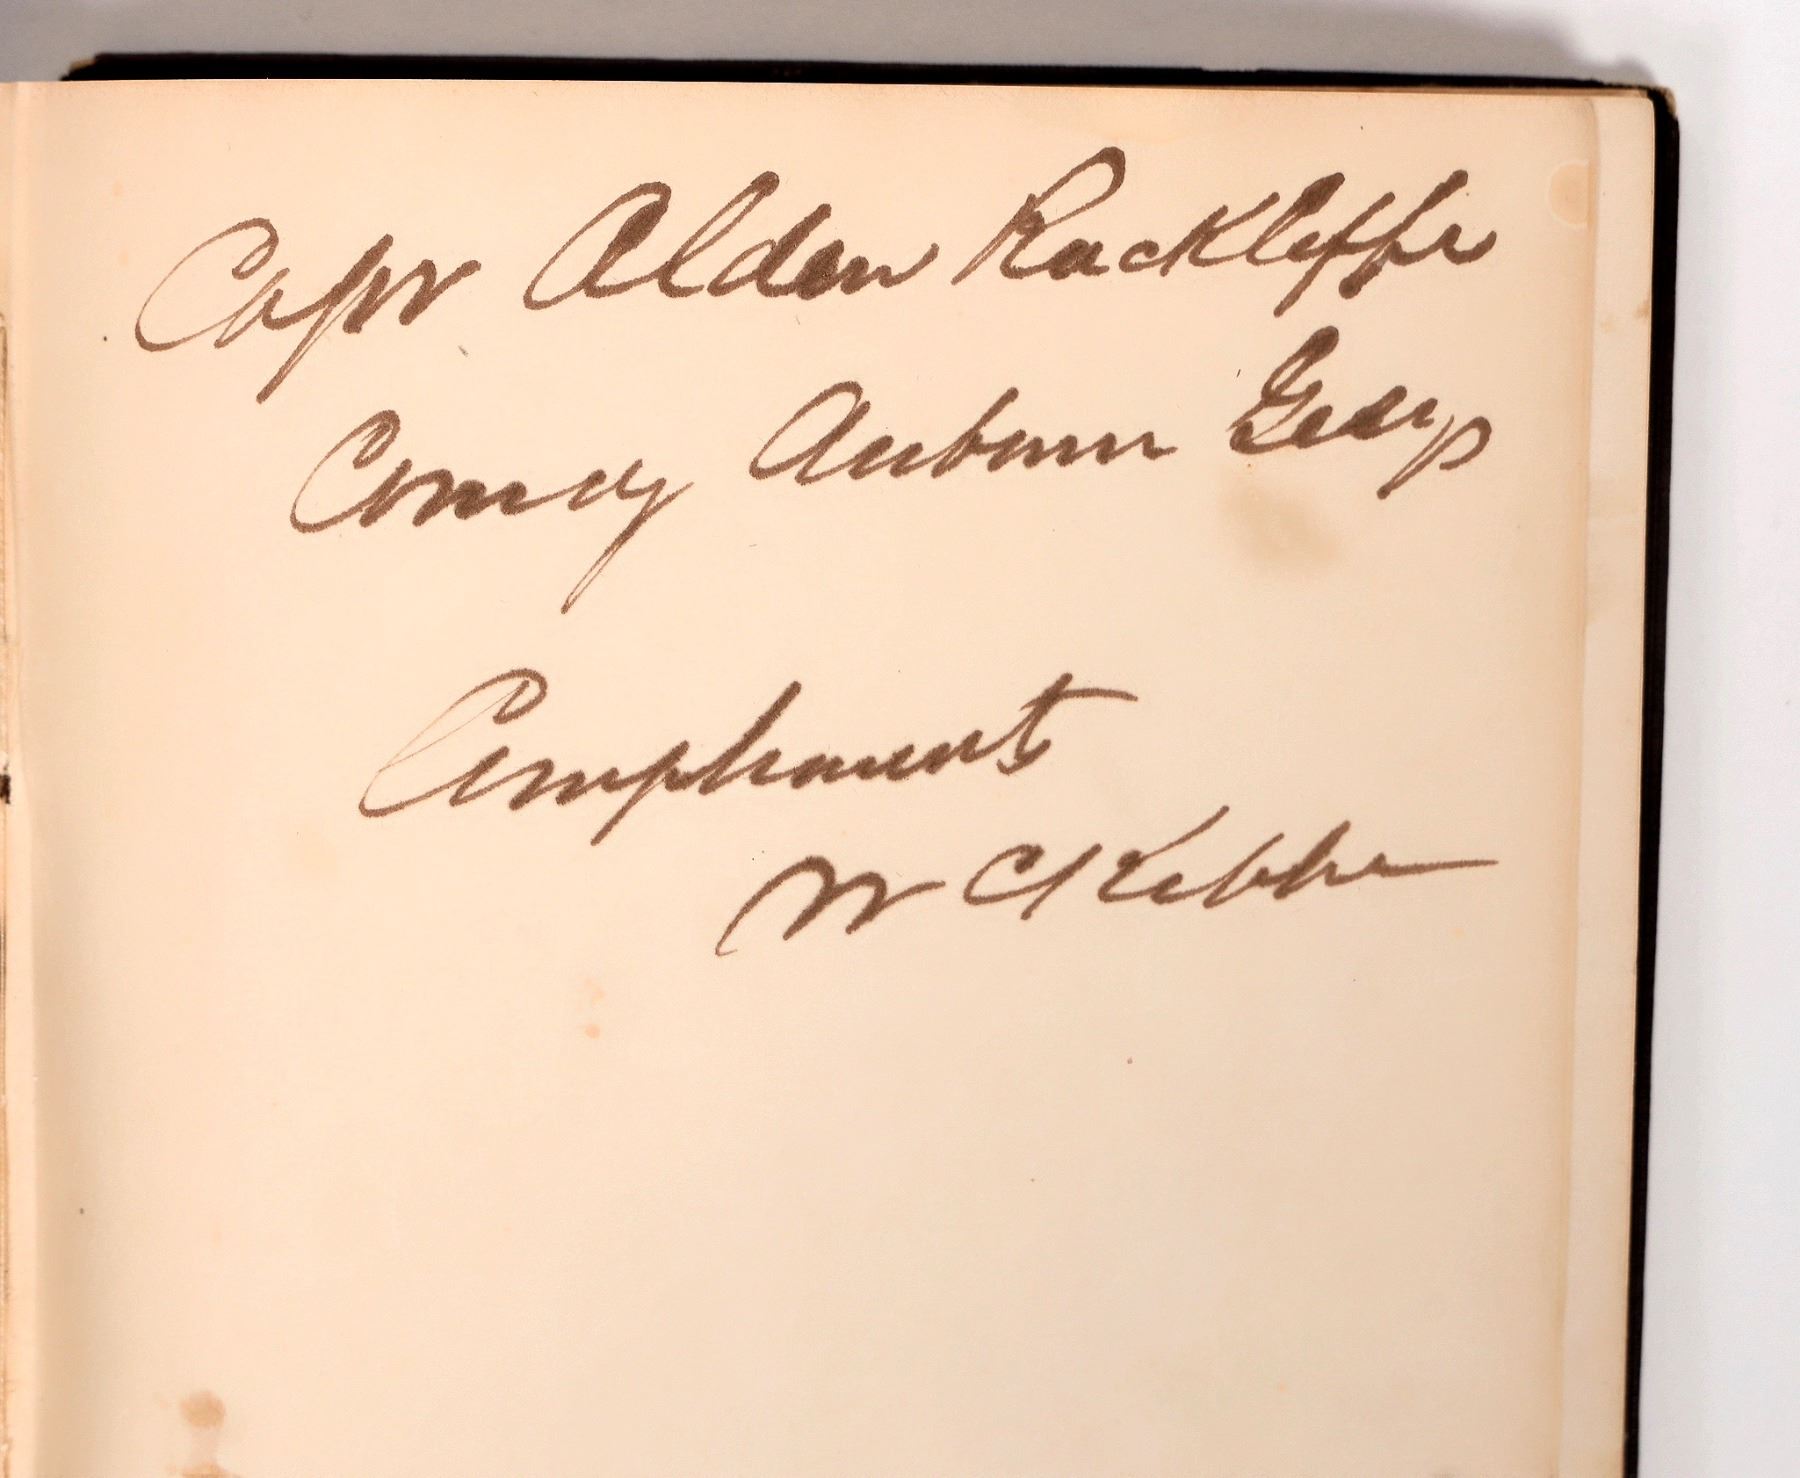 Capt Alden Rackliffe
Comdg Auburn Greys
Compliments
W C Kibbe